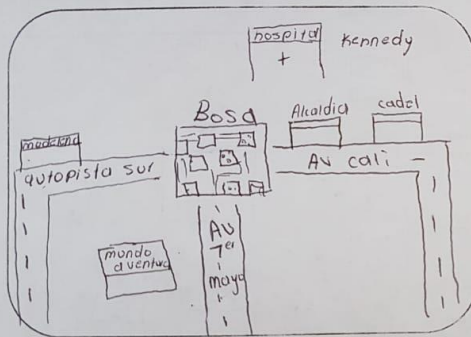 hospital
kennedy
Bosa
Alcaldia
cadel
madelena
autopista sur
AV cali
mundo
aventura
AV
1er
mayo